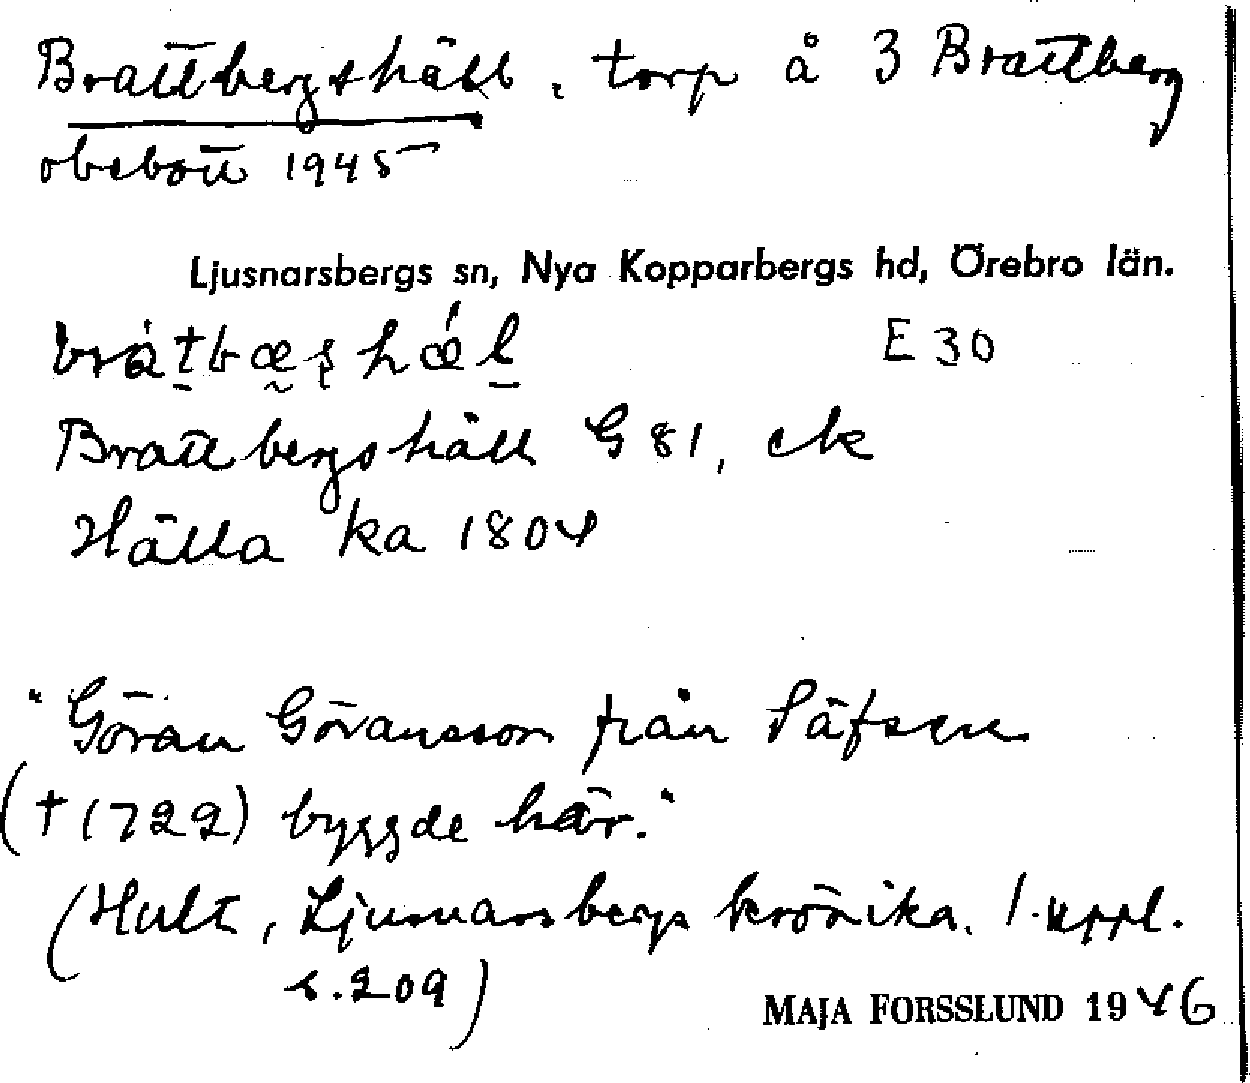 Brattbergshäll, torp å 3 Brattberg
obebott 1945
Ljusnarsbergs sn, Nya Kopparbergs hd, Örebro län.
E 30
Brattbergshäll G 81, ek
Hälla ka 1804
"Göran Göransson från Säfsen
(† 1722) byggde här."
(Hult, Ljusnarsbergs krönika. 1. uppl.
s. 209)
MAJA FORSSLUND 1946